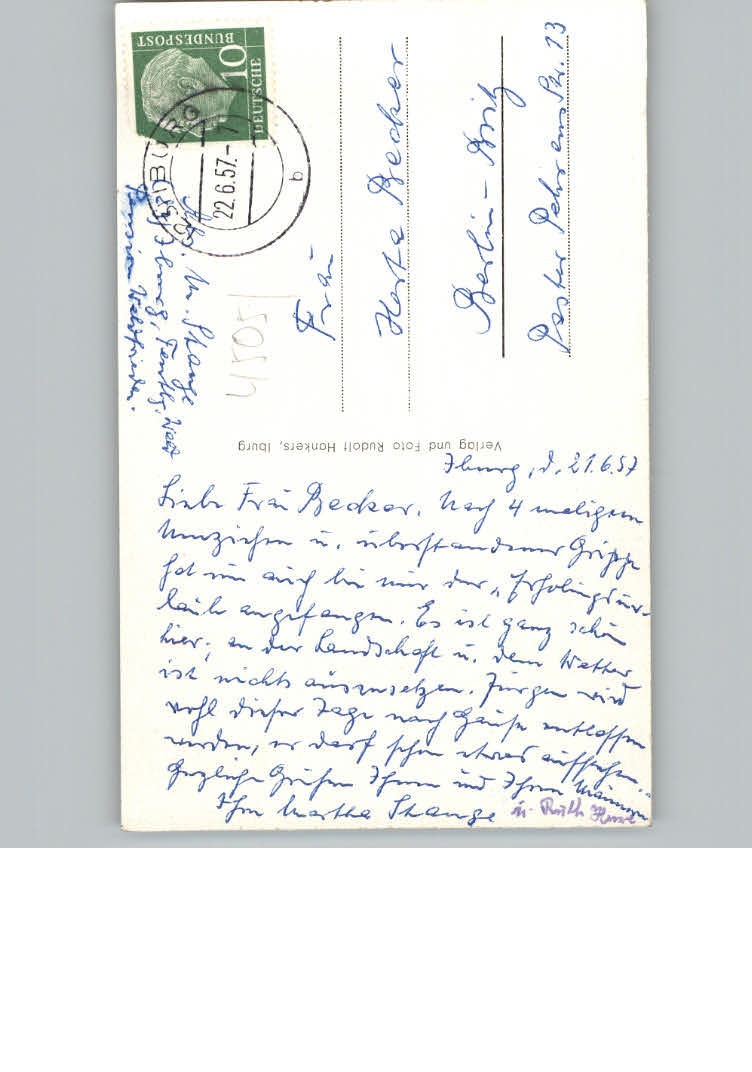 Iburg, d. 21.6.57
Liebe Frau Becker. Nach 4 maligem
Umziehen u. überstandener Grippe
hat nun auch bei mir der „Erholungsur-
laub angefangen. Es ist ganz schön
hier; an der Landschaft u. dem Wetter
ist nichts auszusetzen. Jürgen wird
wohl dieser Tage nach Hause entlassen
werden, er darf schon etwas aufstehen."
Herzliche Grüße Ihnen und Ihren
Ihre Martha Stange u. Ruth
Verlag und Foto Rudolf Honkers, Iburg
Frau
Herta Becker
Berlin-Britz
Pastor Behrens Str. 13
Abs. M. Stange
Iburg, Teutbg. Wald
Pension Waldfrieden.
4505
DEUTSCHE
BUNDESPOST
10
22.6.57.-7
b